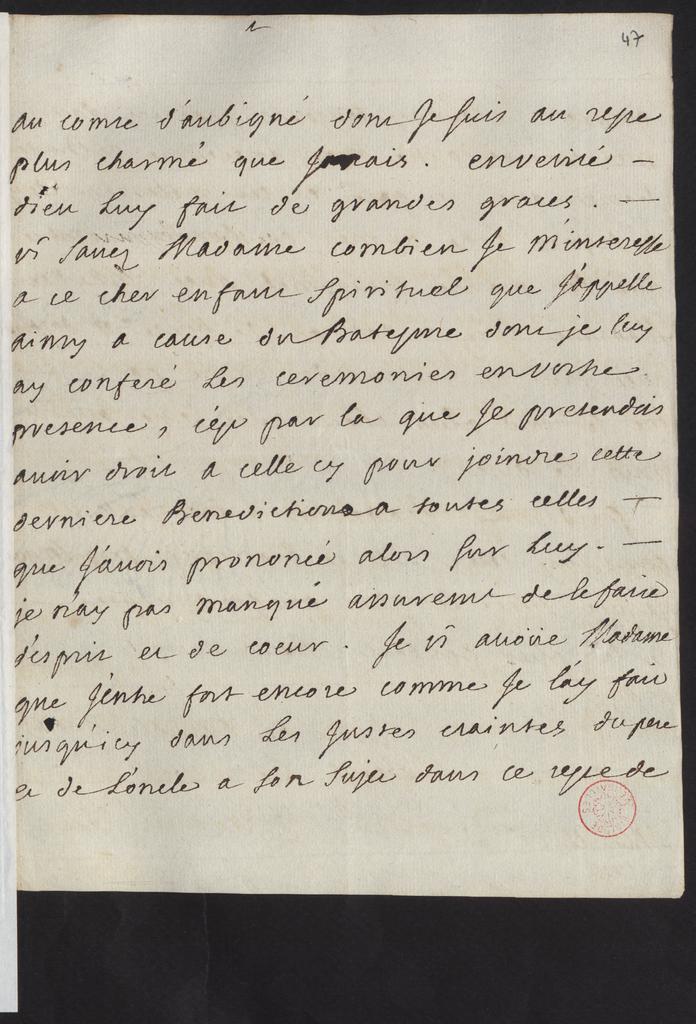 47
au comte d'aubigné dont Je suis au reste
plus charmé que Jamais. en verité —
dieu Luy fait de grandes graces. —
vs Savez Madame combien Je M'interesse
a ce cher enfant Spirituel que J'appelle
ainsy a cause du Batesme dont je luy
ay conferé Les ceremonies en vostre
presence, c'est par la que Je pretendois
avoir droit a celle cy pour joindre cette
derniere Benediction a toutes celles —
que J'avois prononcé alors sur Luy. —
je n'ay pas manqué assurement de le faire
d'esprit et de coeur. Je vs avoüe Madame
que J'entre fort encore comme Je l'ay fait
jusqu'icy dans Les Justes craintes du pere
et de L'oncle a son Sujet dans ce reste de